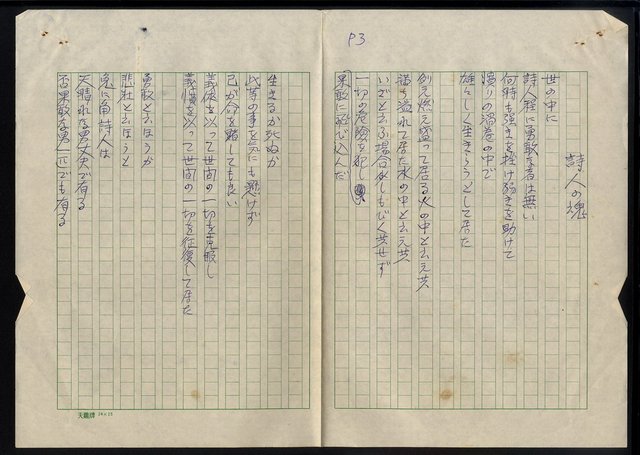 P3
詩人の魂
世の中に
詩人程に勇敢な者は無い
何時も強きを挫け弱きを助けて
濁りの渦巻の中で
雄々しく生きようとして居た
例え燃え盛って居る火の中と云え共
満ち溢れて居た水の中と云え共
いざと云ふ場合
一切の危険を犯し
果敢に飛び込んだ
生きるか死ぬか
此等の事を気にも懸けず
己が命を賭しても良い
義侠を以って世間の一切を克服し
義憤を以って世間の一切を往復して居た
勇敢と云ほうか
悲壮と云ほうと
兎に角詩人は
天晴れな男丈夫で有る
否果敢な男一匹でも有る
天鵝牌 24×25